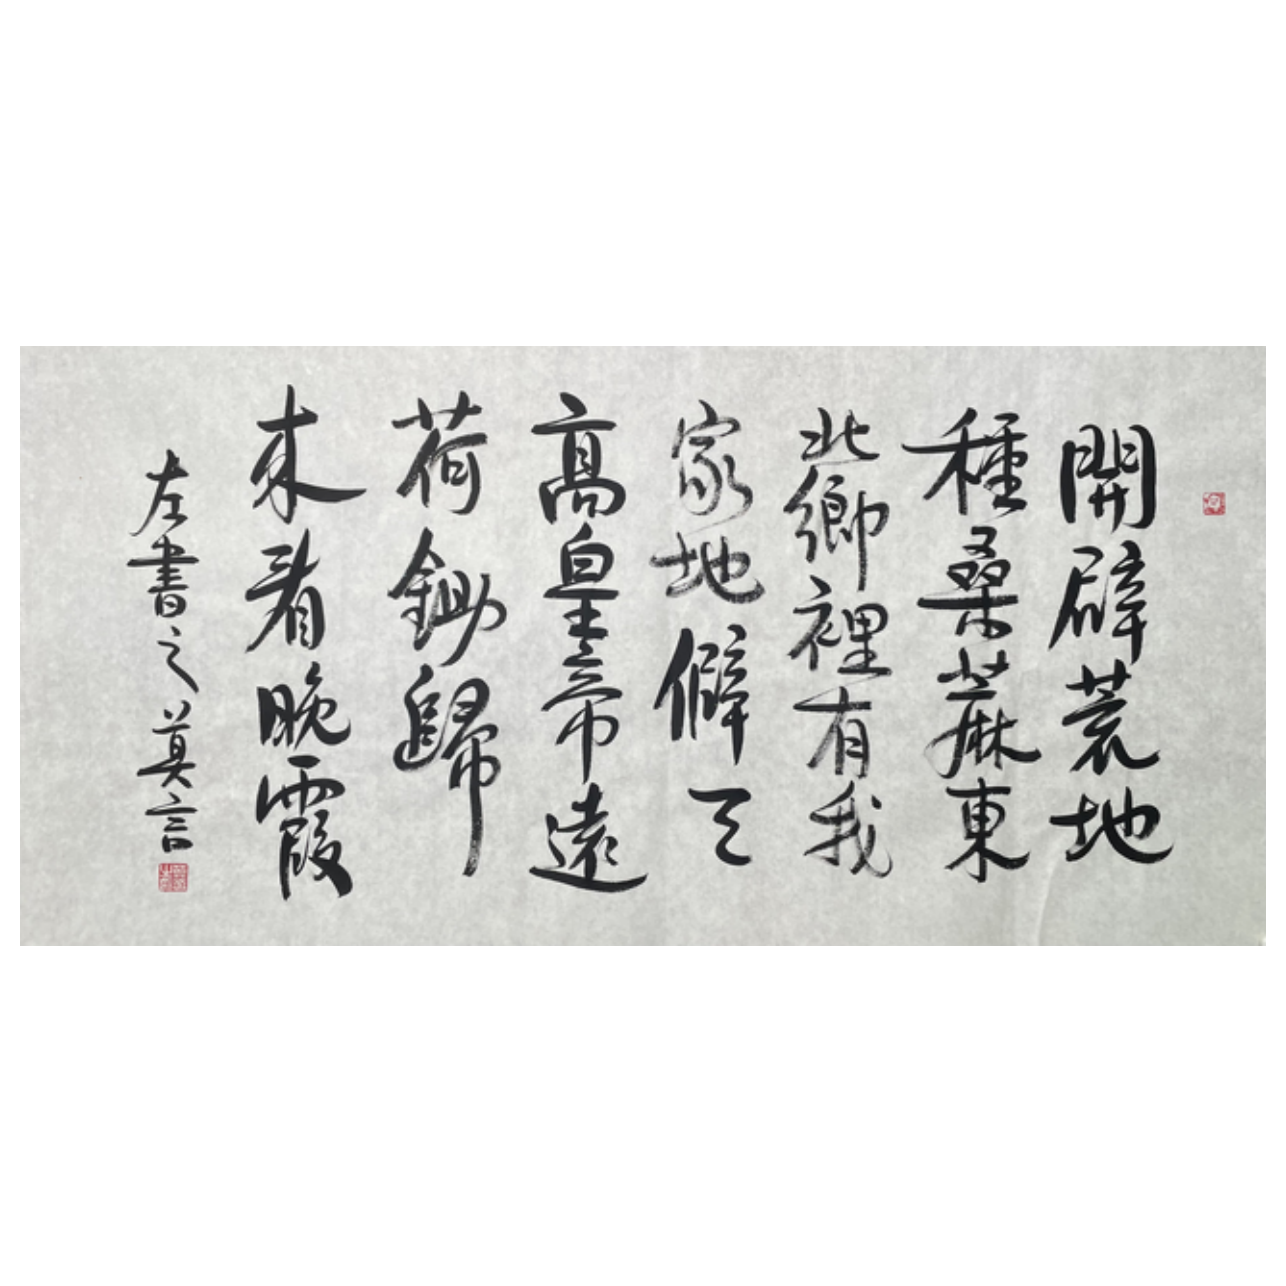 開辟荒地
種桑蔴東
北鄉裡有我
家地僻天
高皇帝遠
荷鋤歸
來看晚霞
左書之莫言